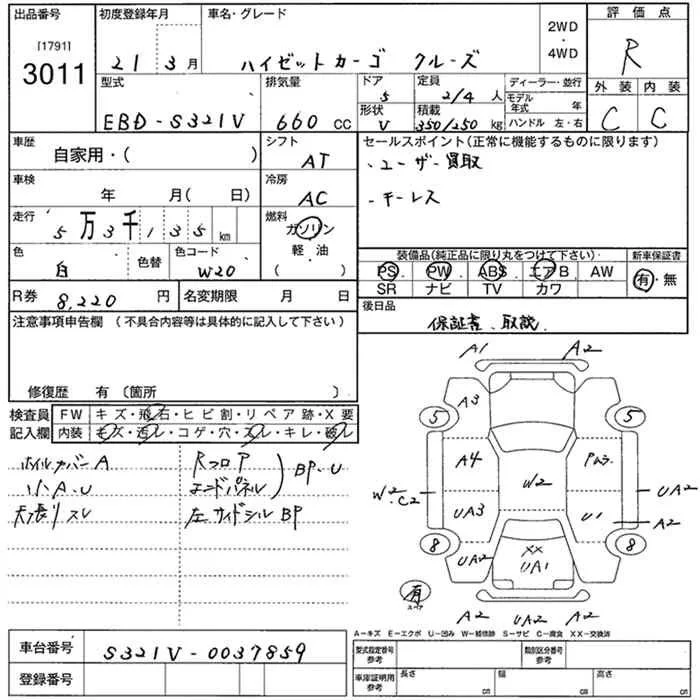 出品番号
[1791]
3011
初度登録年月
21 3月
車名・グレード
ハイゼットカーゴ クルーズ
2WD
・
4WD
評価点
R
外装 内装
C C
型式
EBD-S321V
排気量
660 CC
ドア
5
定員
2/4 人
形状
V
積載
350/250 kg
ディーラー・並行
モデル年式 年
ハンドル 左・右
車歴
自家用・( )
シフト
AT
車検
年 月( 日)
冷房
AC
走行
5万3千135 km
燃料
ガソリン
軽・油
( )
色
白
色替
色コード
W20
R券 8,220 円
名変期限 月 日
セールスポイント(正常に機能するものに限ります)
・ユーザー買取
・キーレス
装備品(純正品に限り丸をつけて下さい)
新車保証書
PS PW ABS エアB AW
SR ナビ TV カワ
有・無
後日品
保証書、取説
注意事項申告欄 (不具合内容等は具体的に記入して下さい)
修復歴 有 〔箇所 〕
検査員
記入欄
FW キズ・飛石・ヒビ割・リペア跡・X要
内装 キズ・汚レ・コゲ・穴・スレ・キレ・破レ
ホイルカバーA
小A.U
天張リスレ
Rフロア
エンドパネル
) BP.U
左サイドシルBP
A1 A2
A3
5 5
A4 Pムラ
W2 .C2
W2
UA2
UA3 U1
A2
8 8
UA2
XX
UA1
有
スペア
A2 UA2 A2
A-キズ E-エクボ U-凹み W-補修跡 S-サビ C-腐食 XX-交換済
車台番号 S321V-0037859
登録番号
型式指定番号
参考
類別区分番号
参考
車庫証明用
参考
長さ cm
幅 cm
高さ cm